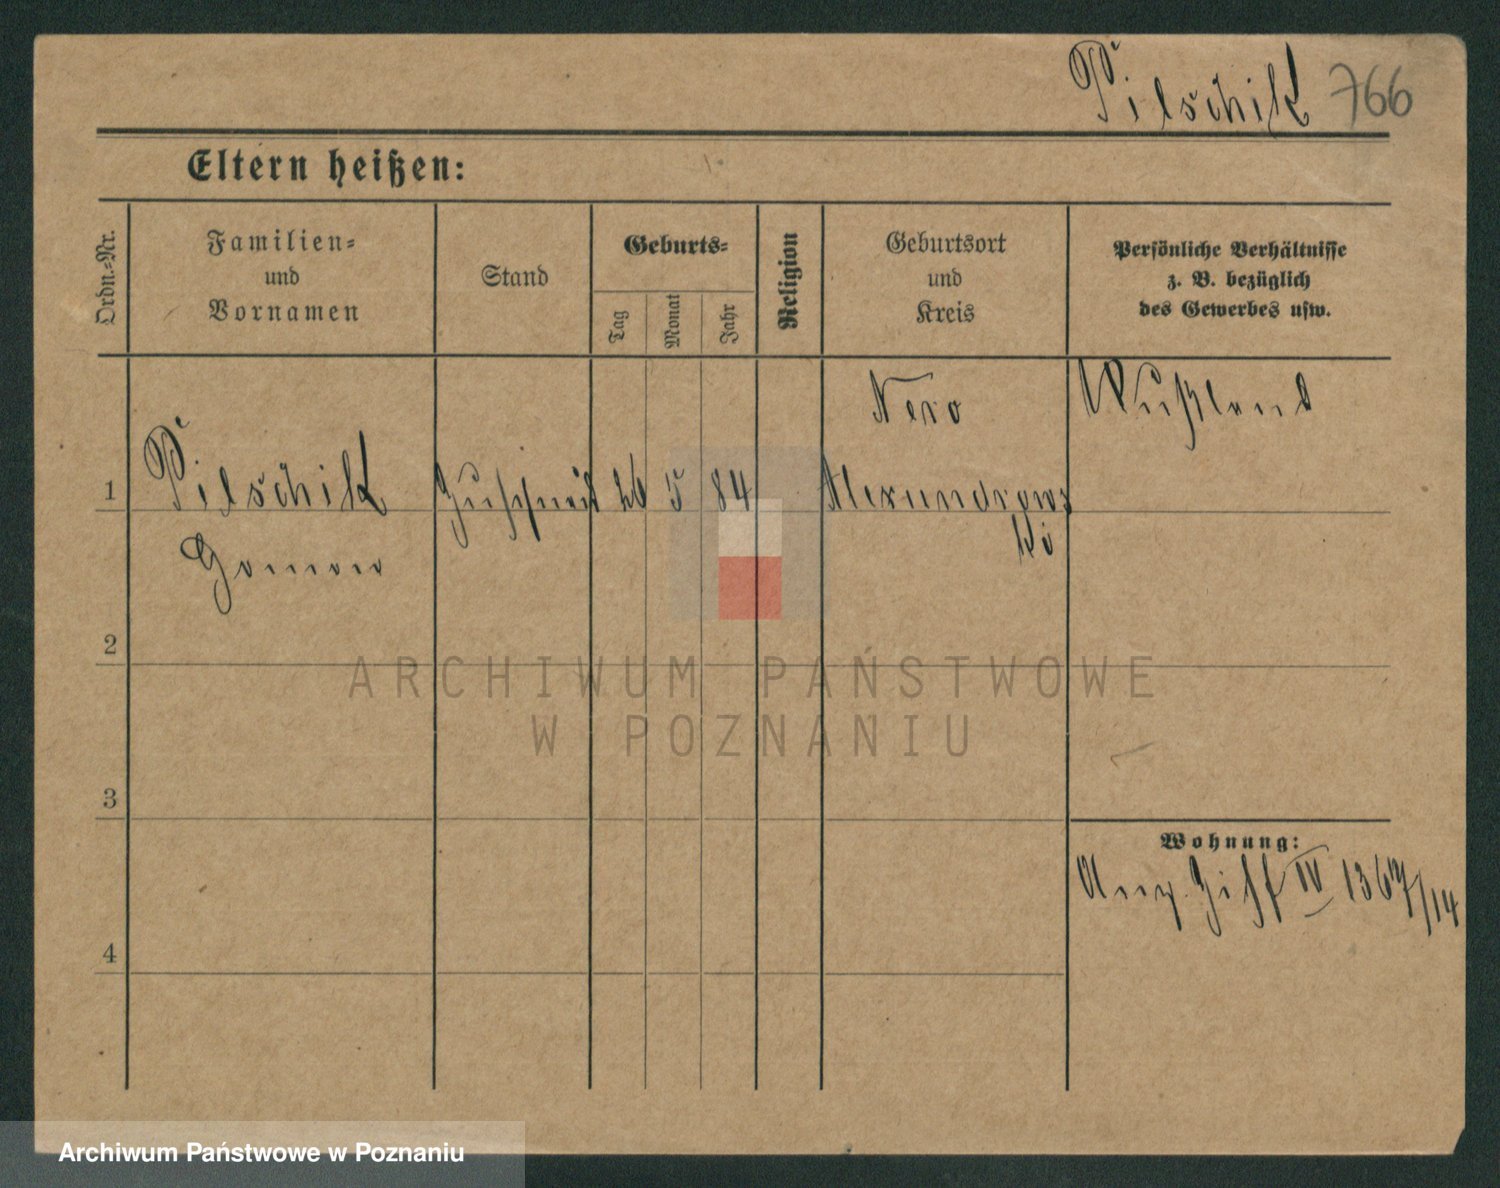 Pilschik 766
Eltern heißen:
Ordn.-Nr.
Familien-
und
Vornamen
Stand
Geburts-
Tag
Monat
Jahr
Religion
Geburtsort
und
Kreis
Persönliche Verhältnisse
z. B. bezüglich
des Gewerbes usw.
Rußland
1 Pilschik 26 5 84 Alexandrows
ki
2
3
4
Wohnung:
IV 1367/14
ARCHIWUM PAŃSTWOWE
W POZNANIU
Archiwum Państwowe w Poznaniu